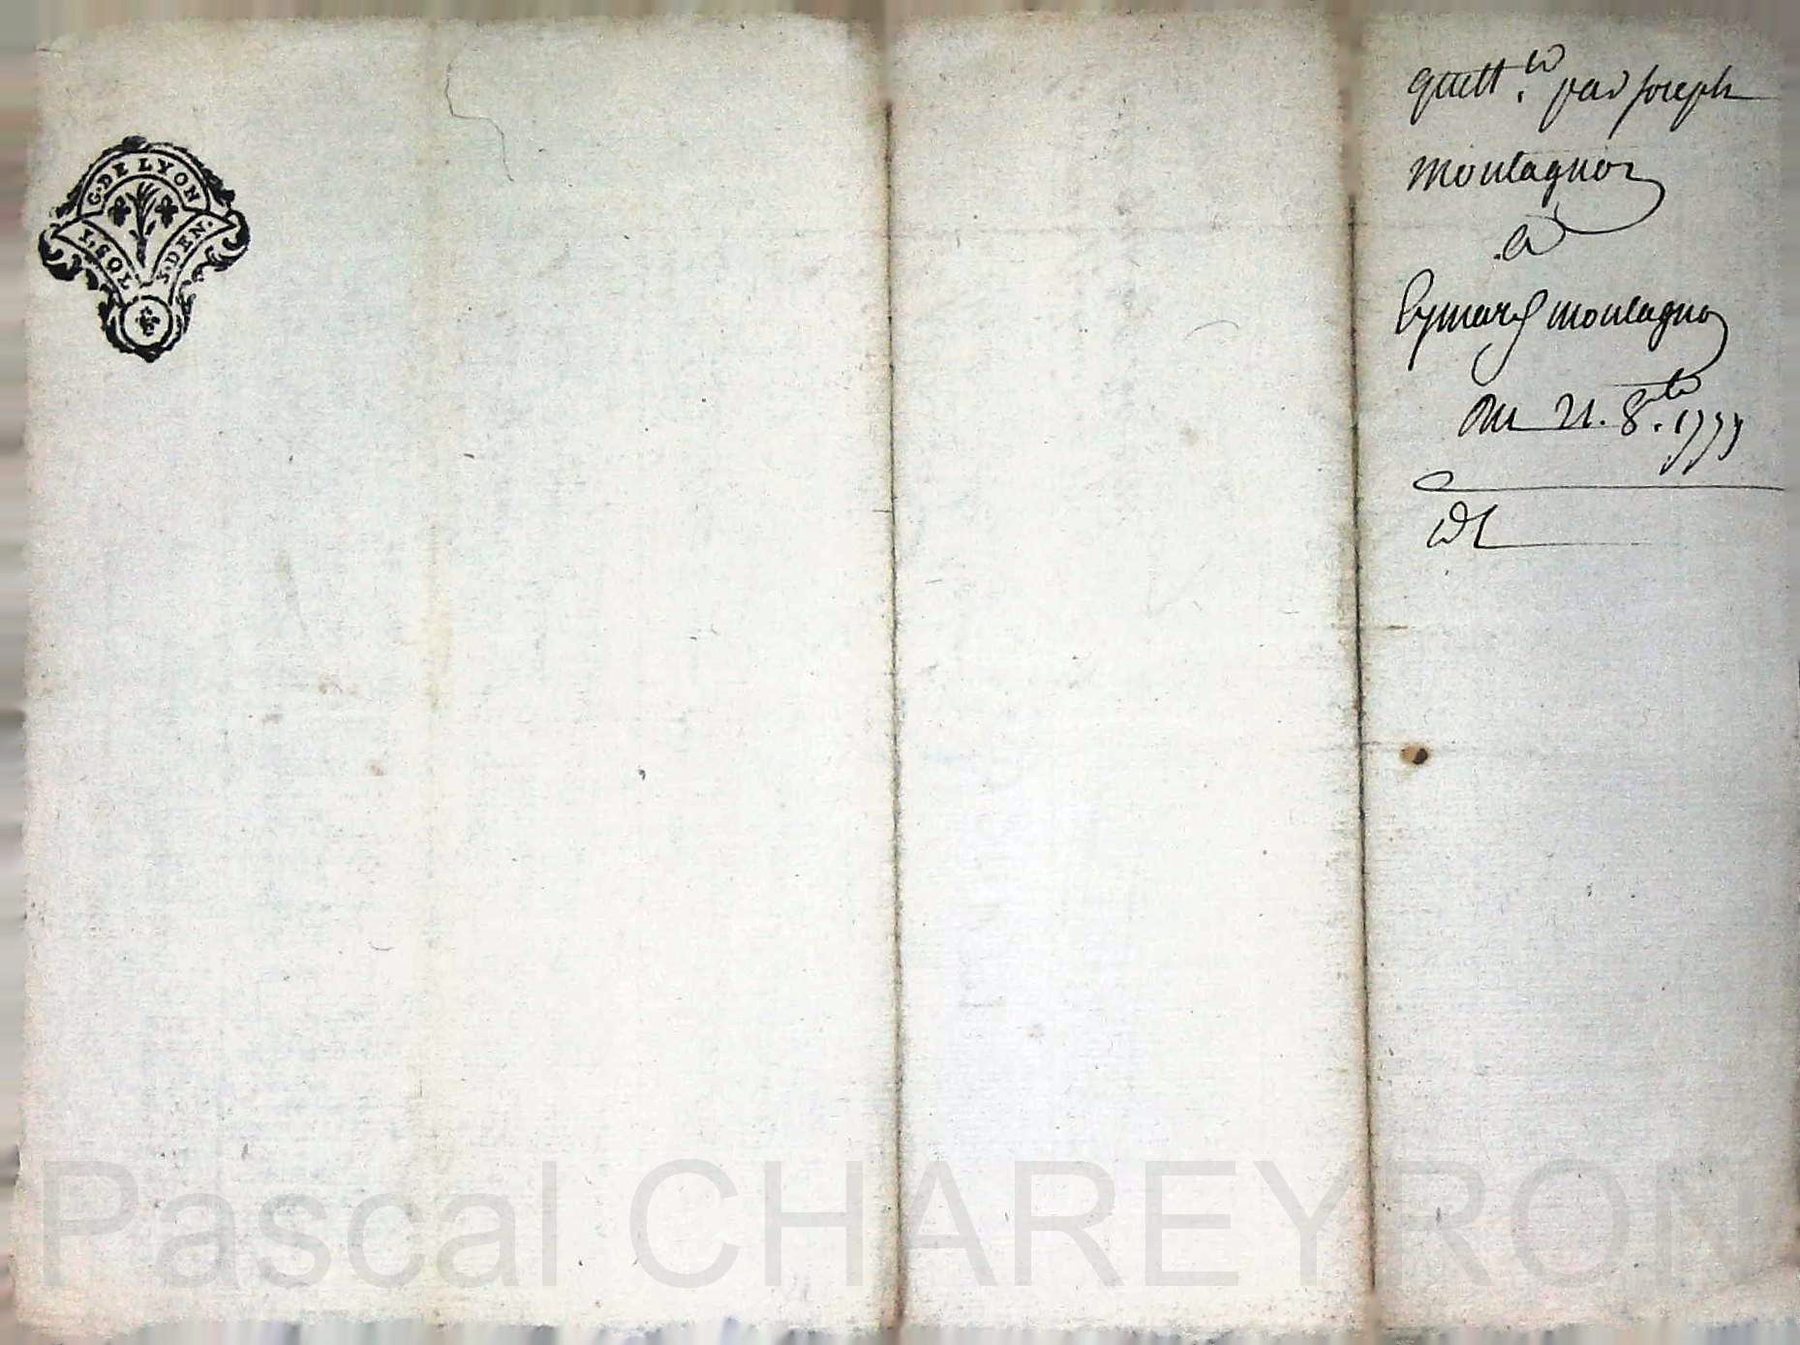 G. DE LYON
1. SOL
3. DEN.
quitt.ce par Joseph
montagnon
a
Eymard montagnon
Du 21. 8.bre 1777
Pascal CHAREYRON